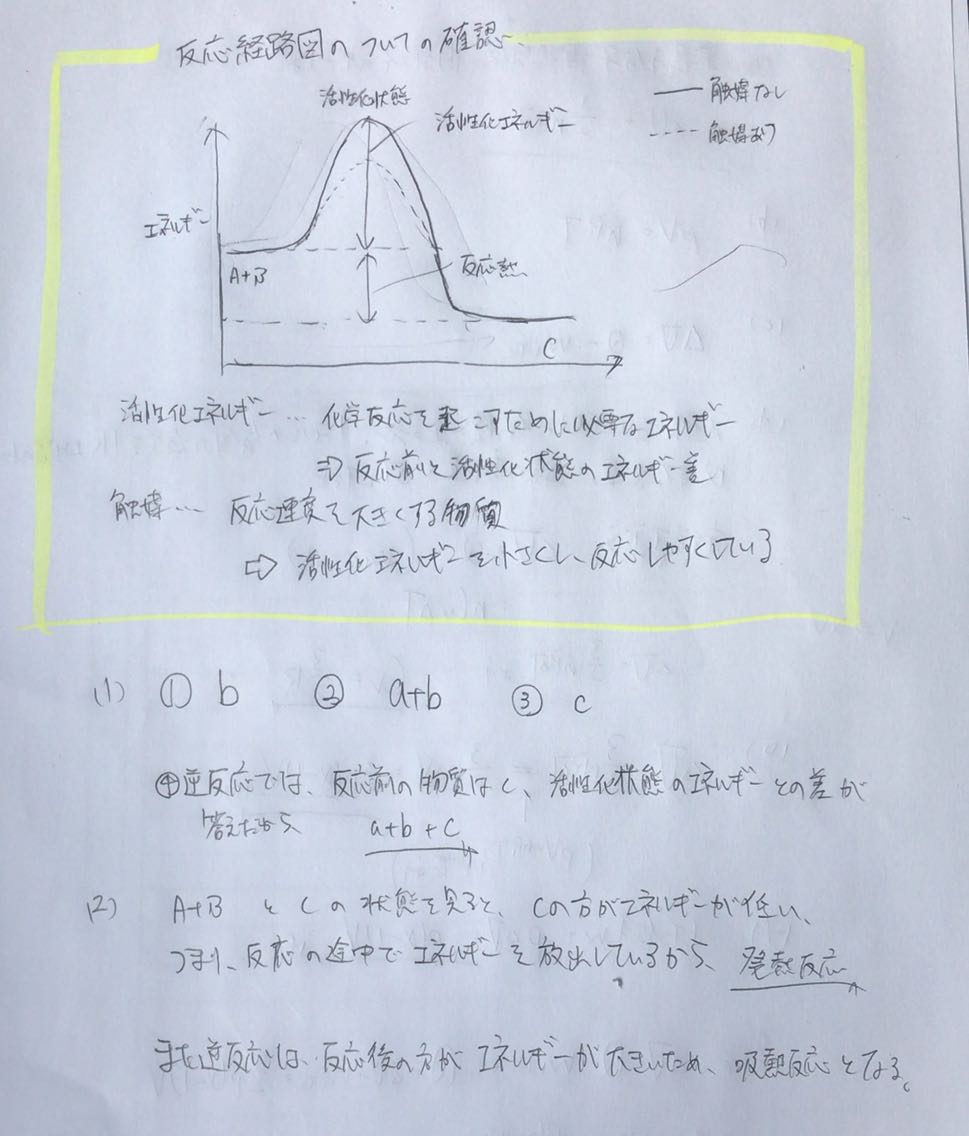 反応経路図のついての確認
活性化状態
活性化エネルギー
触媒なし
触媒あり
エネルギー
A+B
反応熱
C
活性化エネルギー… 化学反応を起こすために必要なエネルギー
⇒ 反応前と活性化状態のエネルギー差
触媒… 反応速度を大きくする物質
⇨ 活性化エネルギーを小さくし、反応しやすくしている
(1) ① b ② a+b ③ c
④逆反応では、反応前の物質はC、活性化状態のエネルギーとの差が
答えだから a+b+c
(2) A+B とCの状態を見ると、Cの方がエネルギーが低い、
つまり、反応の途中でエネルギーを放出しているから、発熱反応
また逆反応は、反応後の方がエネルギーが大きいため、吸熱反応となる。